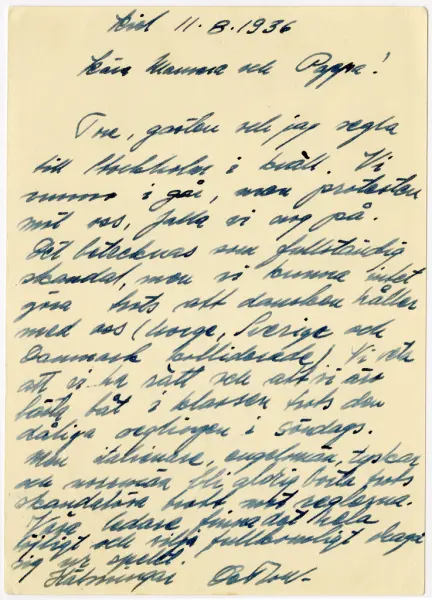 Kiel 11.8.1936
Kära Mamma och Pappa!
Tore, gasten och jag segla
till Stockholm i kväll. Vi
vunno i går, men protesten
mot oss, fulla vi nog på.
Det betecknas som fullständig
skandal, men vi kunna intet
göra trots att dansken håller
med oss (Norge, Sverige och
Danmark kolliderade) Vi vet
att vi ha rätt och att vi är
bästa båt i klassen trots den
dåliga seglingen i söndags.
Men italienare, engelsmän, tyskar
och norrmän bli aldrig borta trots
skandalösa brott mot reglerna.
Våra ledare finna det hela
löjligt och vilja fullkomligt draga
sig ur spelet.
Hälsningar